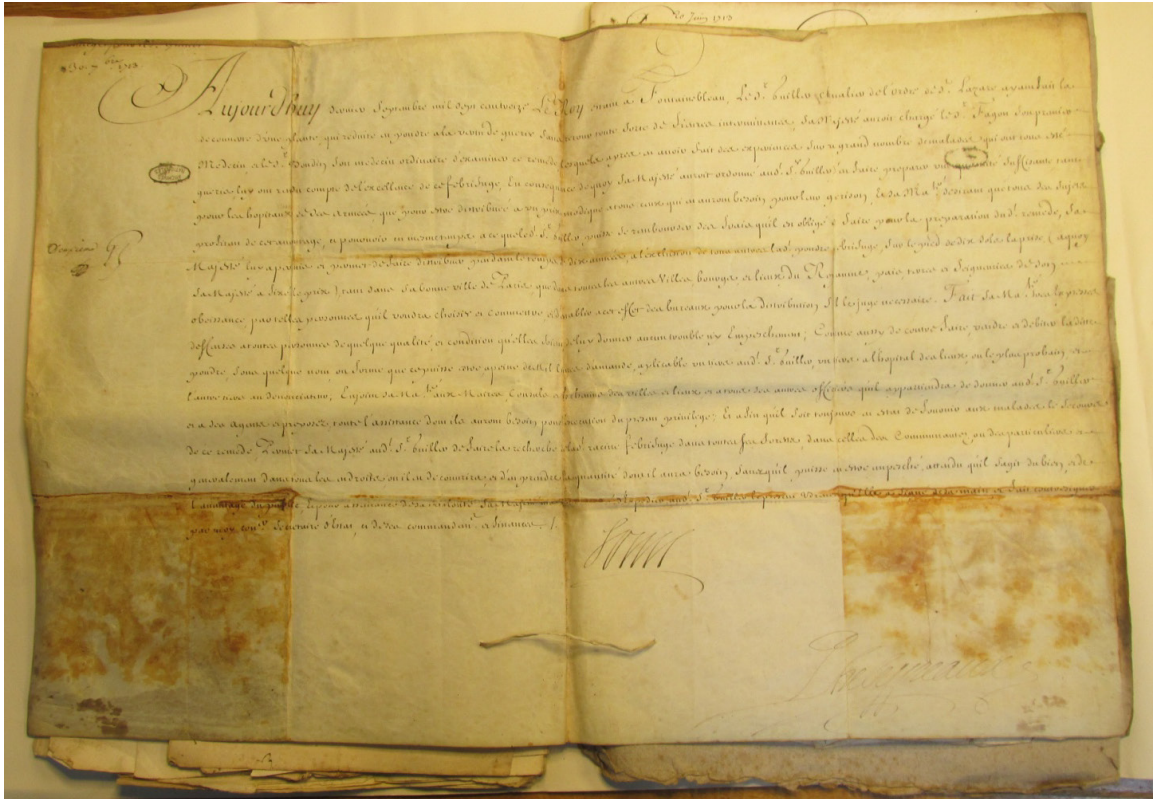 20 Juin 1713
1713
Aujourdhuy dernier Septembre mil sept cent treize Le Roy estant a Fontainebleau, Le Sr. huillier de l'ordre de St. Lazare ayant fait la
decouverte d'une plante qui reduite en poudre a la vertu de guerir toute sorte de fievres intermittantes, Sa Majesté auroit chargé le Sr. Fagon Son premier
Medecin et le Sr. Boudin Son medecin ordinaire d'examiner ce remede lesquels apres en avoir fait des experiences Sur un grand nombre de malades, qui ont tous esté
gueris luy ont rendu compte de l'excellence de ce febrifuge, En consequence de quoy Sa Majesté auroit ordonné aud. Sr. huillier d'en faire preparer une quantité Suffisante tant
pour les hopitaux et des armées que pour estre distribuée a un prix modique a tous ceux qui en auront besoin pour leur guerison, Et Sa Ma.té desirant que tous Ses Sujets
profitent de cet avantage, et pourvoir en mesme temps a ce que led. Sr. huillier puisse se rembourser des frais qu'il est obligé de faire pour la preparation dud. remede, Sa
Majesté luy a permis et permet de faire distribuer pendant dix années, lad. poudre febrifuge, Sur le pied de dix Sols la prise (a quoy
Sa Majesté a fixé le prix) tant dans Sa bonne ville de Paris que dans toutes les autres Villes bourgs et lieux du Royaume, païs terres et Seigneuries de Son
obeissance par telles personnes qu'il voudra choisir et commettre et d'establir a cet effet des bureaux pour la distribution S'il le juge necessaire. Fait Sa Ma.té tres expresses
deffenses a toutes personnes de quelque qualité et condition quelles Soient de luy donner aucun trouble ny Empeschement; Comme aussy de contrefaire, vendre et debiter ladite
poudre Sous quelque nom ou forme que ce puisse estre apeine de mil livres d'amande, aplicable un tiers aud. Sr. huillier, un tiers a l'hopital des lieux ou le plus prochain et
l'autre tiers au denonciateur; Enjoint Sa Ma.té aux Maires Consuls et Echevins des villes et lieux et a tous Ses autres officiers qu'il appartiendra de donner aud. Sr. huillier
et a Ses agens et preposez toute l'assistance dont ils auront besoin pour l'execution du present privilege; Et afin qu'il Soit toujours en estat de fournir aux malades le Secours
de ce remede Permet Sa Majesté aud. Sr. huillier de faire la recherche de la racine febrifuge dans toutes Ses forests, dans celles des Communautez ou des particuliers et
generalement dans tous les endroits ou il en decouvrira et d'en prendre la quantité dont il aura besoin Sans qu'il puisse en estre empesché, attendu qu'il s'agit du bien et de
l'avantage du public, Et pour assurance de Sa volonté Sa Majesté aud. Sr. huillier le present de Sa main et fait contresigner
par moy con.er Secretaire d'Estat et de Ses commandem.s et finances.
Louis
Phelypeaux